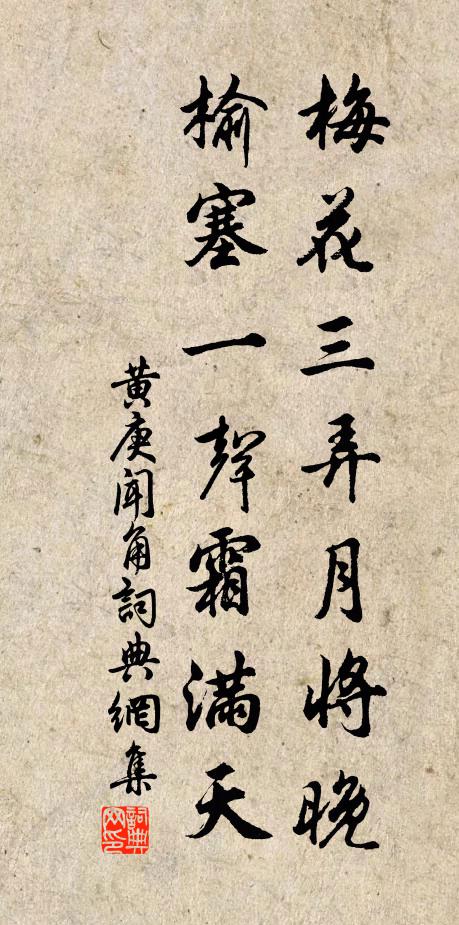 梅花三弄月將晚
榆塞一聲霜滿天
黃庚聞角詞典網集
詞典網印